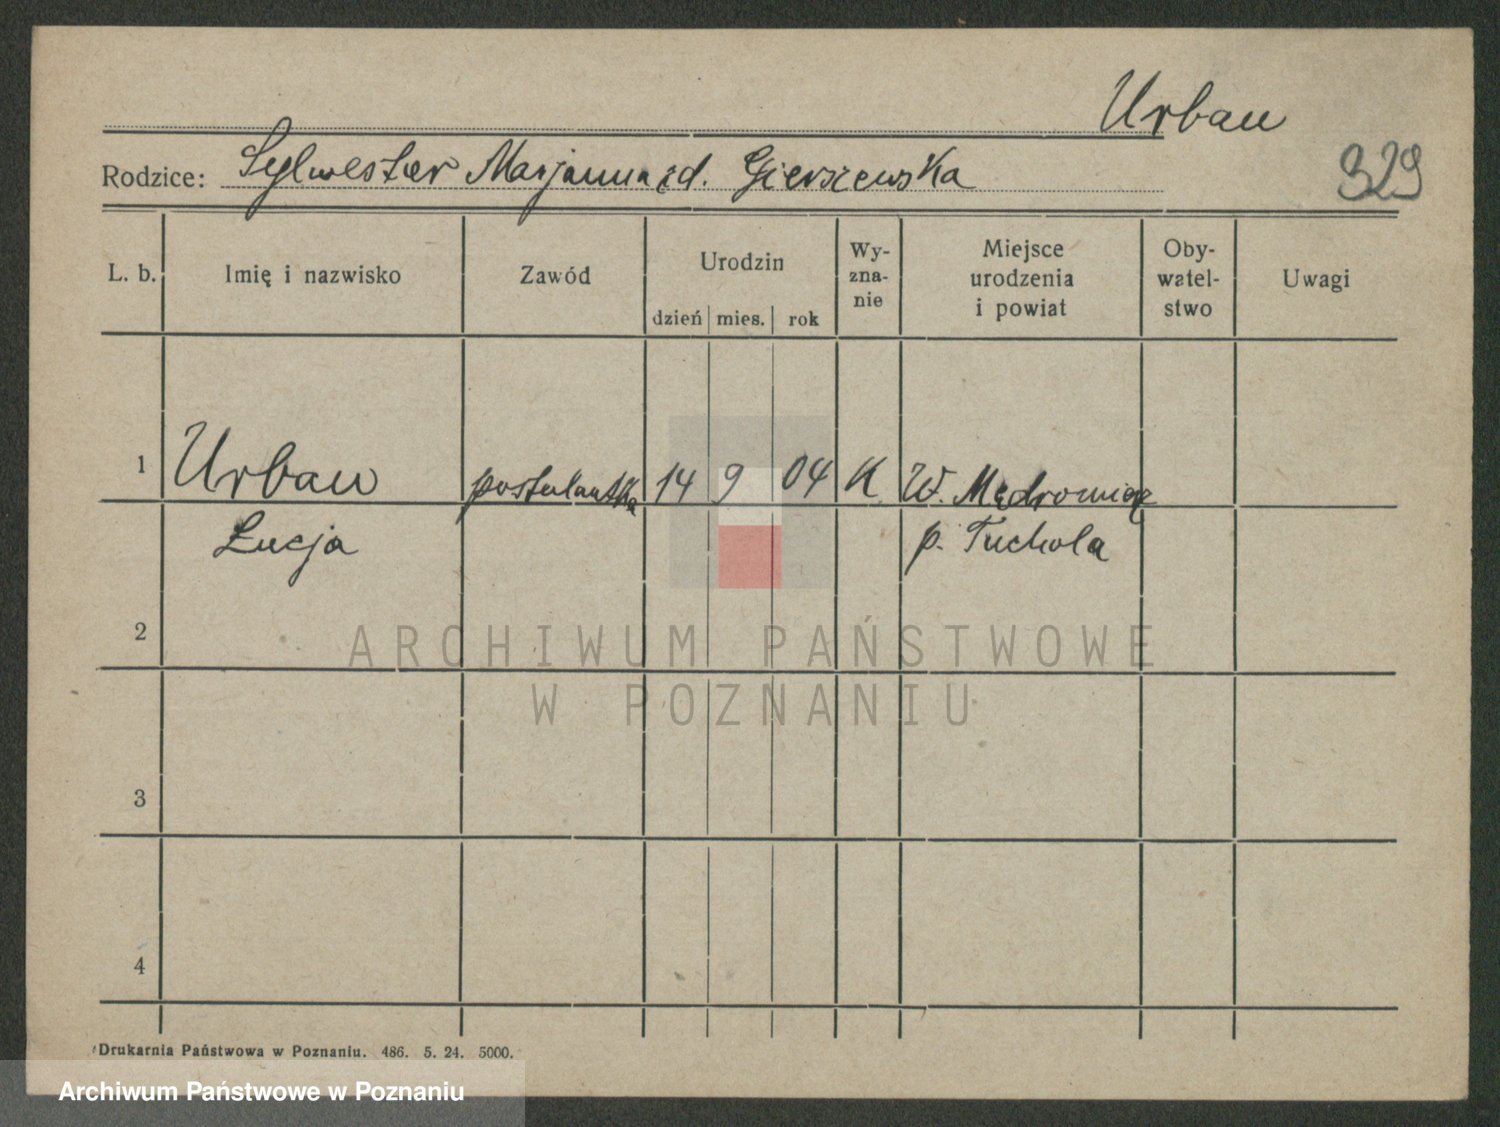 Urban
Rodzice: Sylwester Marjanna zd. Gierszewska
329
L. b. Imię i nazwisko Zawód Urodzin dzień mies. rok Wy-zna-nie Miejsce urodzenia i powiat Oby-watel-stwo Uwagi
1 Urban postulantka 14 9 04 K W. Mędromierz
Łucja p. Tuchola
2
3
4
Drukarnia Państwowa w Poznaniu. 486. 5. 24. 5000.
ARCHIWUM PAŃSTWOWE
W POZNANIU
Archiwum Państwowe w Poznaniu